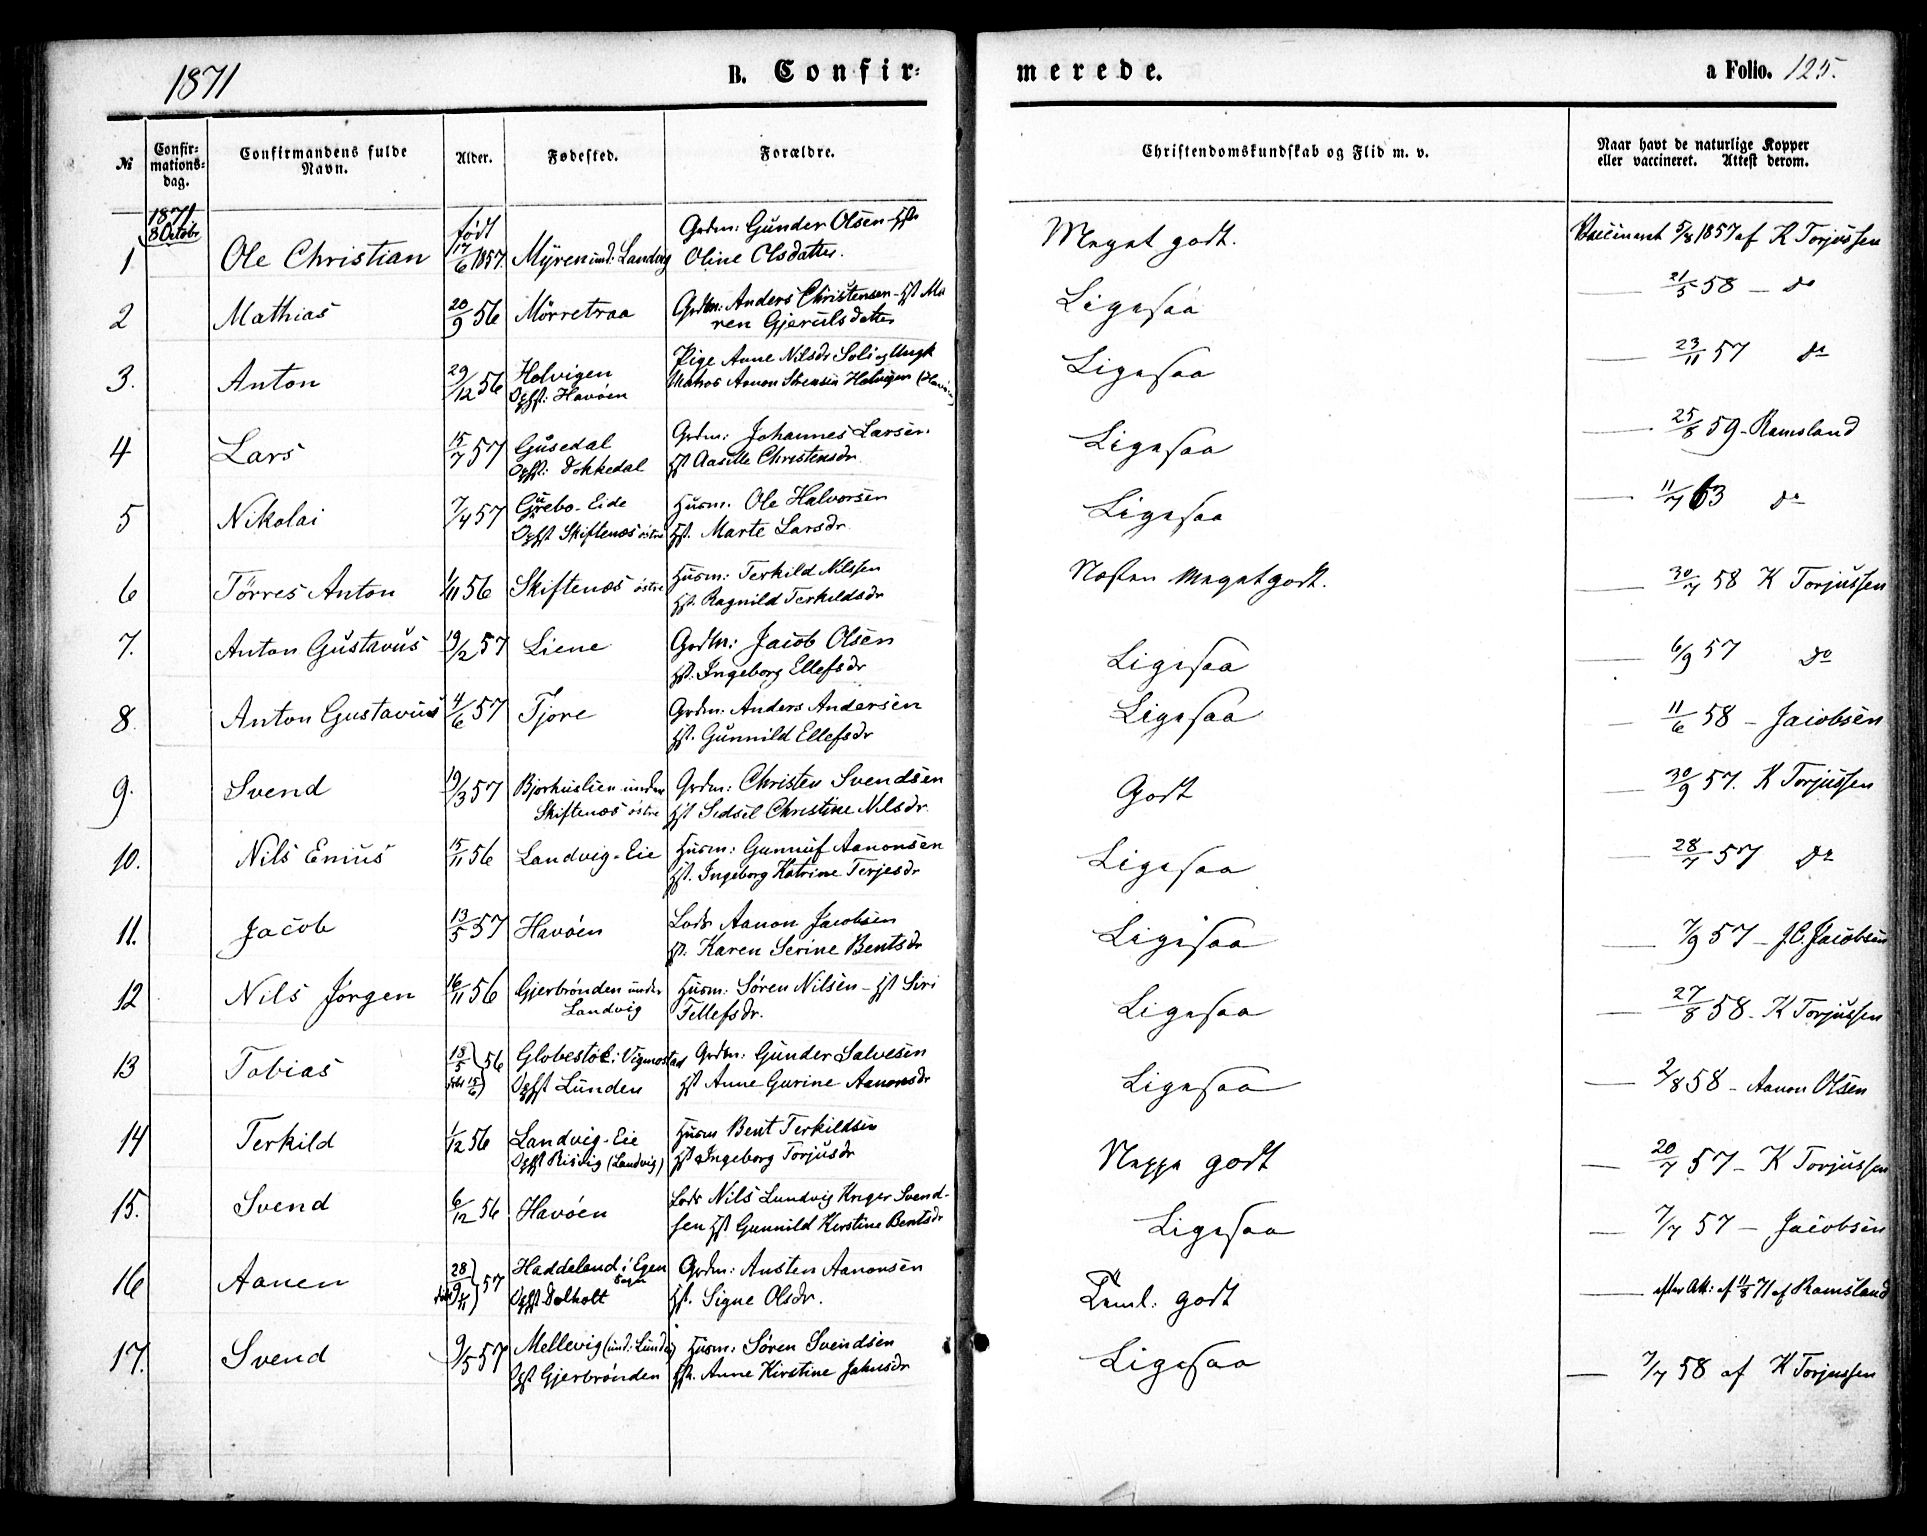 1871 B. Confir- merede. a Folio. 125.
№ Confir-mations-dag. Confirmandens fulde Navn. Alder. Fødested. Forældre. Christendomskundskab og Flid m. v. Naar havt de naturlige Kopper eller vaccineret. Attest derom.
1871 8 Octobr
1 Ole Christian født 17/6 1857 Myren und: Landvig Grdm: Gunder Olsen Hst Meget godt. Vaccineret 5/8 1857 af K Torjussen
Oline Olsdatter.
2 Mathias 20/9 56 Mørretraa Grdm: Anders Christensen - Hst Ma Ligesaa — 21/5 58 - do
ren Gjerulsdatter
3. Anton 29/12 56 Holvigen Pige Anne Nilsdr Soli og Ungk Ligesaa — 23/11 57 do
Opfst: Havøen Matros Aanon Sørensen Holvigen
4 Lars 15/7 57 Gusedal Grdm: Johannes Larsen Ligesaa — 25/8 59 - Ramsland
Opfst: Dokkedal Hst Aaselle Christensdr
5 Nikolai 7/4 57 Grebo-Eide Husm. Ole Halvorsen Ligesaa — 11/7 63 do
Opfst Skiftenæs østre Hst. Marte Larsdr.
6 Tørres Anton 1/11 56 Skiftenæs østre Husm: Terkild Nilssen Næsten Meget godt. — 30/7 58 K Torjussen
Hst. Ragnild Terkildsdr
7. Anton Gustavus 19/2 57 Liene Grdm: Jacob Olsen Ligesaa — 6/9 57 do
Hst. Ingeborg Ellefsdr
8. Anton Gustavus 4/6 57 Tjore Grdm: Anders Andersen Ligesaa — 11/6 58 - Jacobsen
Hst. Gunnild Ellefsdr
9. Svend 19/3 57 Bjorhuslien under Grdm: Christen Svendsen Godt — 30/9 57. K Torjussen
Skiftenæs østre Hst Sidsel Christine Nilsdr.
10. Nils Enius 15/11 56 Landvig-Eie Husm: Gunnuf Aanonsen Ligesaa — 28/7 57 do
Hst. Ingeborg Katrine Terjesdr
11. Jacob 13/5 57 Havøen Lods Aanon Jacobsen Ligesaa — 7/9 57 - J.C. Jacobsen
Hst. Karen Serine Bentsdr
12 Nils Jørgen 16/11 56 Gjerbrønden under Husm: Søren Nilsen - Hst Siri Ligesaa — 27/8 58 - K Torjussen
Landvig Tellefsdr.
13 Tobias 18/5 56 Globestøl i Vigmostad Grdm: Gunder Salvesen Ligesaa — 2/8 58 - Aanon Olsen
15/6 Opfst Lunden Hst Anne Gurine Aanonsdr
14 Terkild 1/12 56 Landvig-Eie Husm Bent Terkildsen Neppe godt — 20/7 57 - K Torjussen
Opfst Risdig (Landvig) Hst Ingeborg Torjusdr
15. Svend 6/12 56 Havøen Lods Nils Lundvig Kryger Svend- Ligesaa — 7/7 57 - Jacobsen
sen Hst Gunnild Kirstine Bentsdr
16 Aanen 28/9 57 Haddeland i Egen Sogn Grdm: Austen Aanonsen Teml: godt — efter Att: af 11/8 71 af Ramsland
døbt 9/11 Opfst Dolholt Hst. Signe Olsdr.
17. Svend 9/5 57 Mellevig (und: Lunde) Husm: Søren Svendsen Ligesaa — 7/7 58 af K Torjussen
Opfst Gjerbrønden Hst. Anne Kirstine Jahnsdr